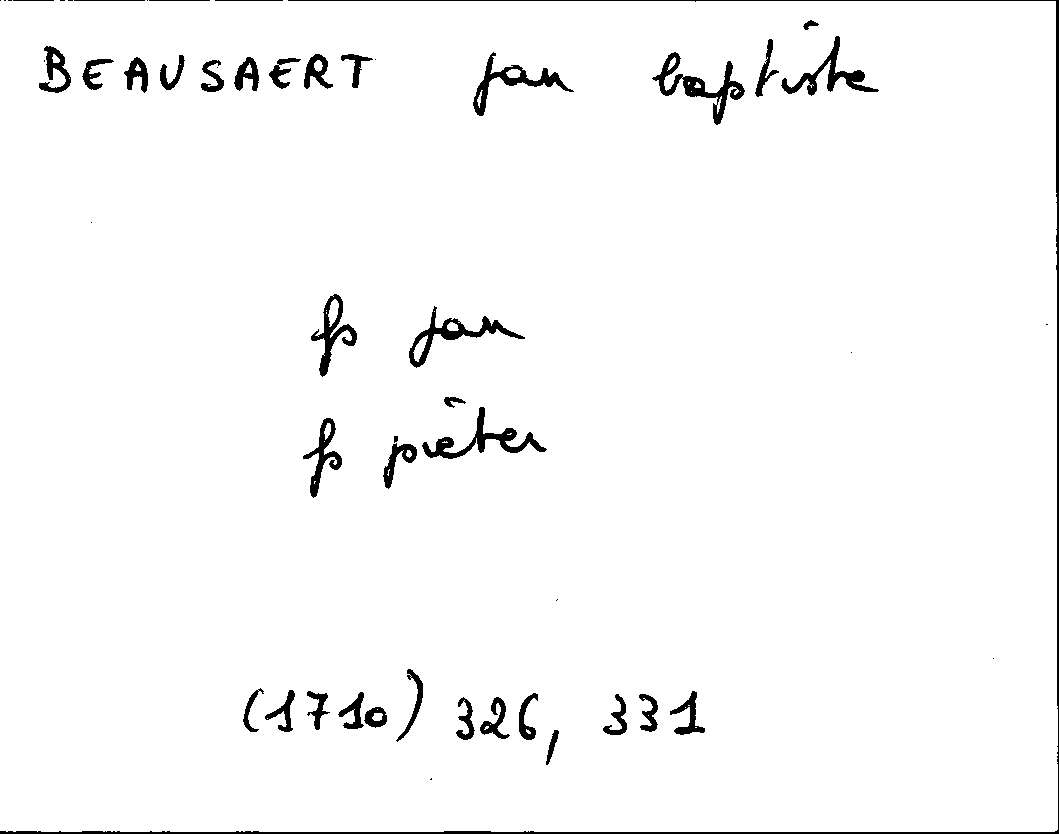 BEAUSAERT jan baptiste
fs jan
fs pieter
(1710) 326, 331